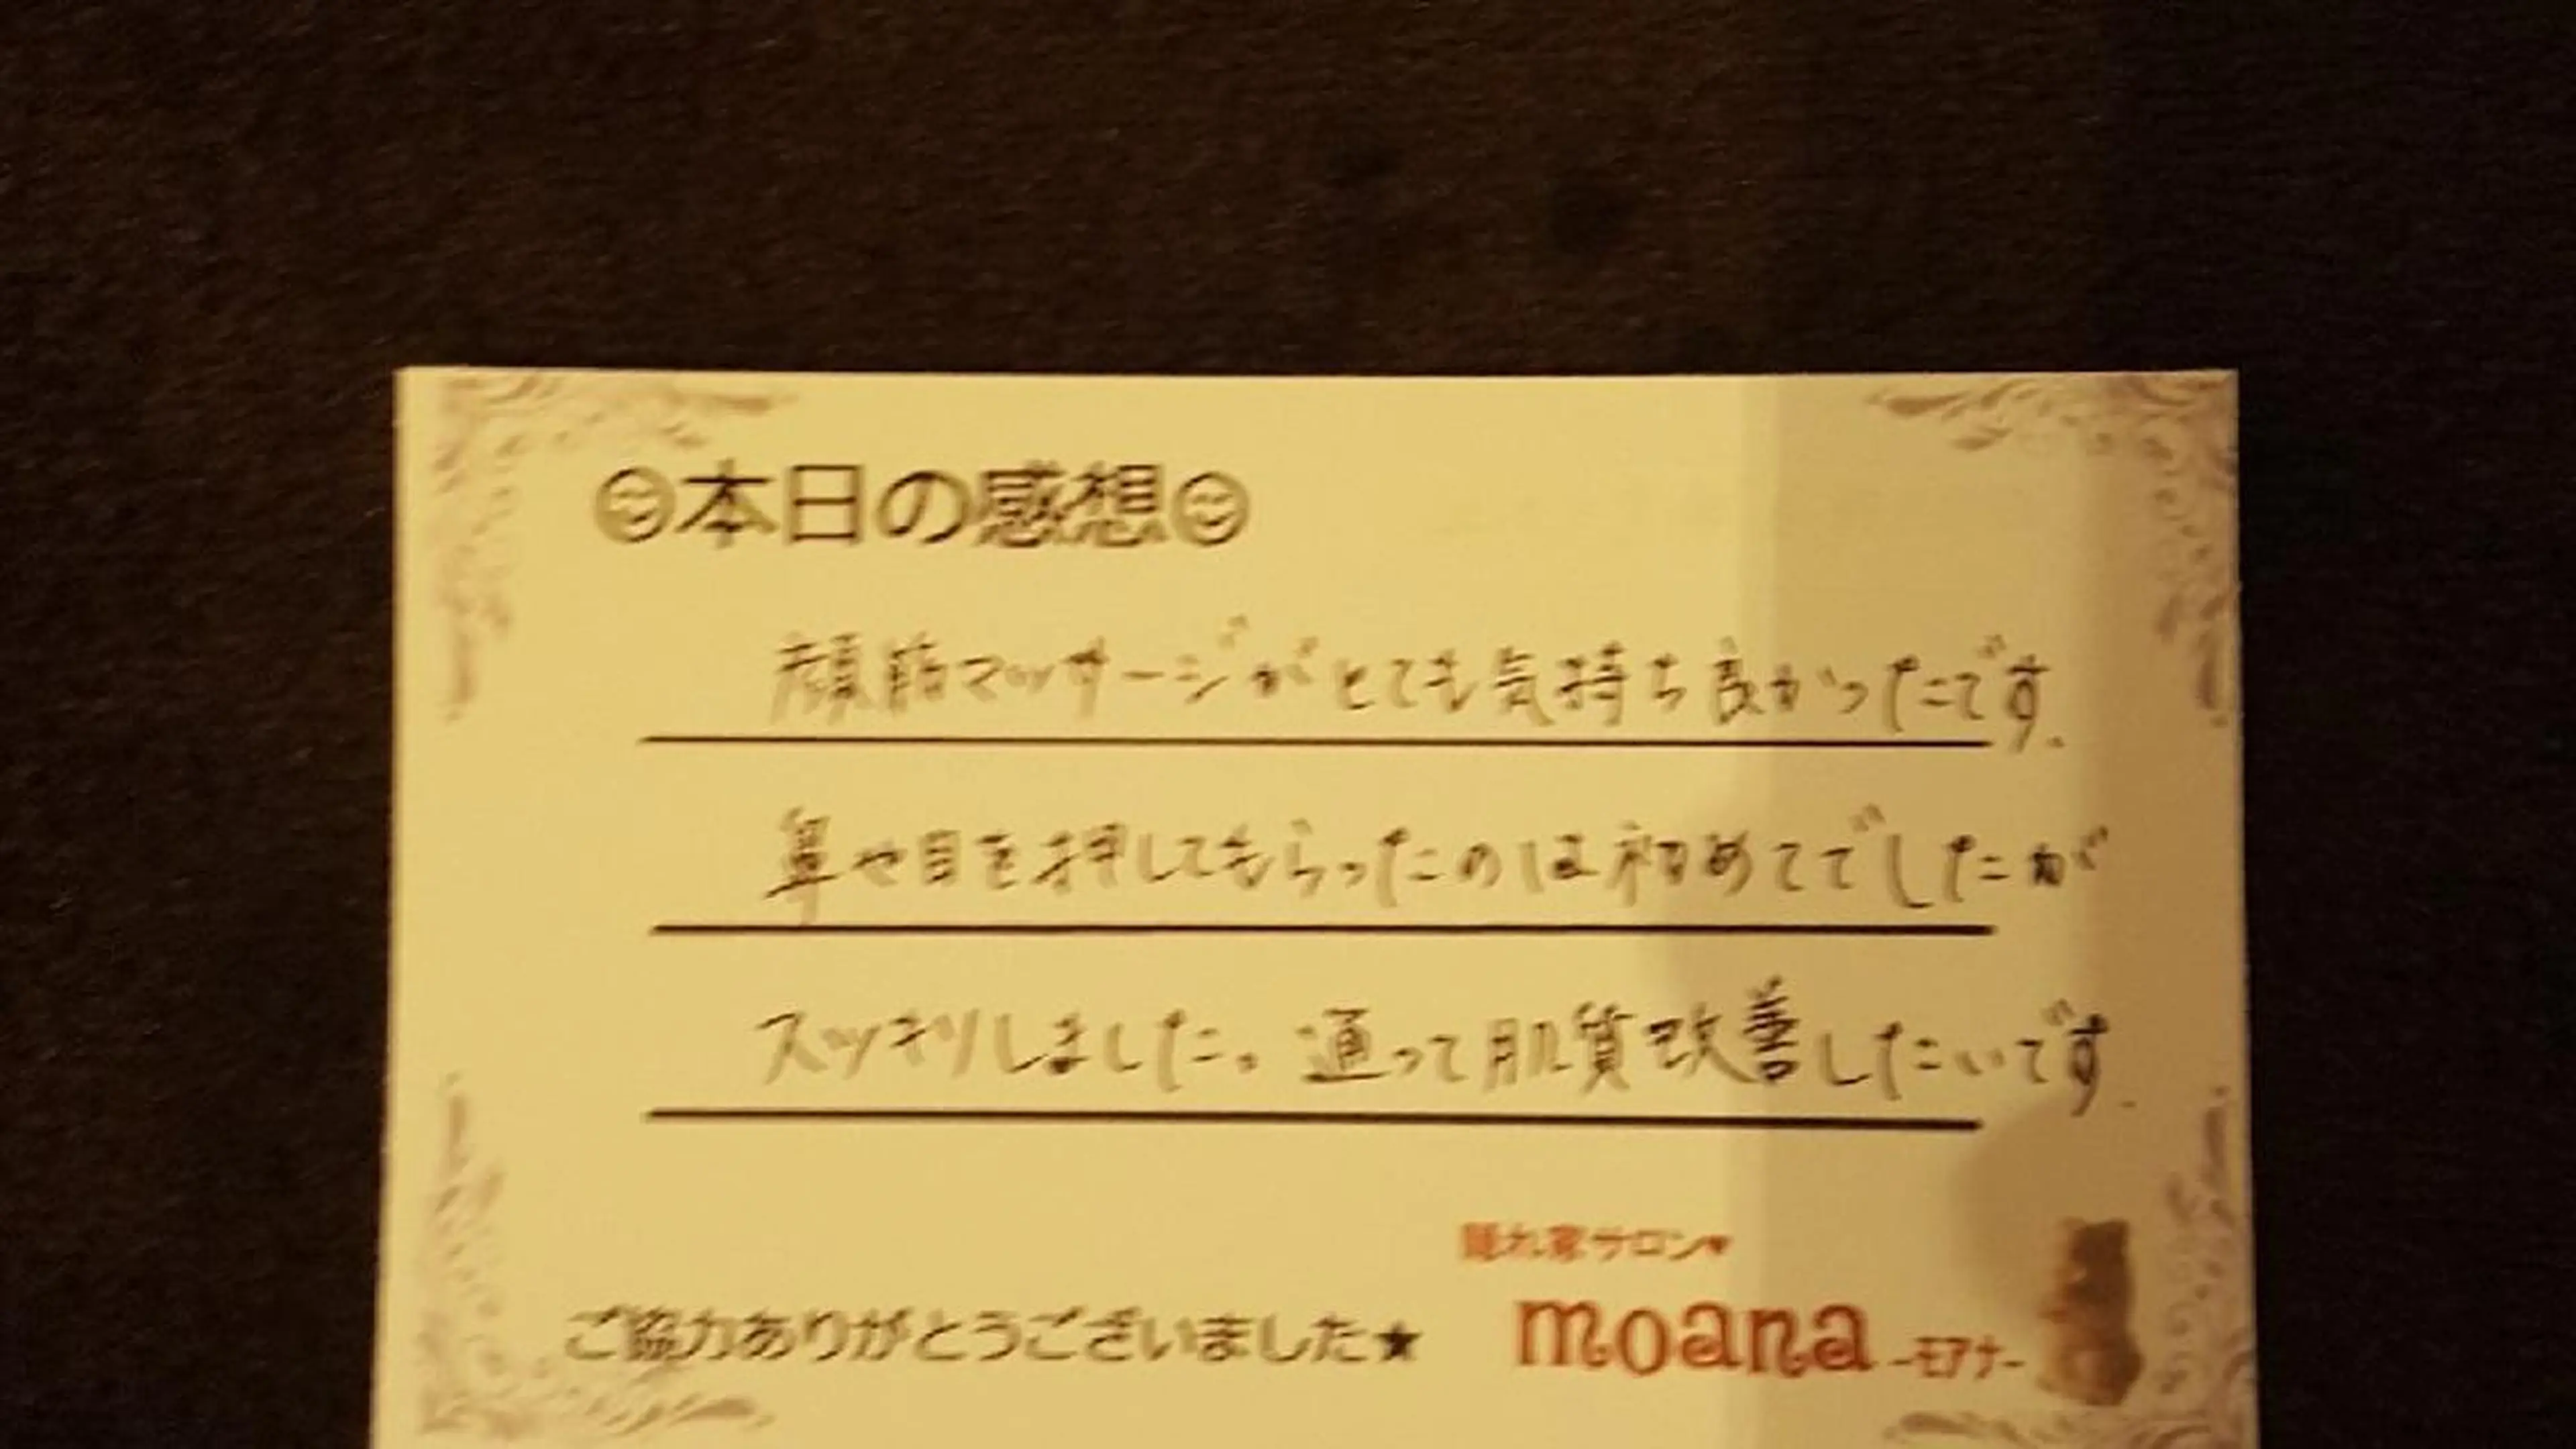 ☺本日の感想☺
顔筋マッサージがとても気持ち良かったです.
鼻や目を押してもらったのは初めてでしたが
スッキリしました。通って肌質改善したいです.
隠れ家サロン♥
ご協力ありがとうございました★ moana -モアナ-